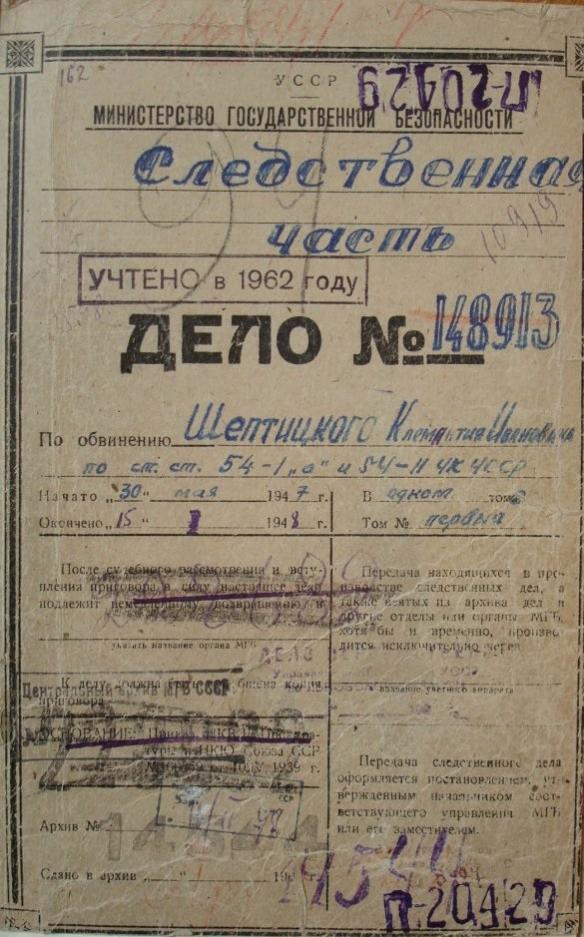 162
УССР
П-20429
МИНИСТЕРСТВО ГОСУДАРСТВЕННОЙ БЕЗОПАСНОСТИ
Следственная
часть
10919
УЧТЕНО в 1962 году
ДЕЛО № 148913
По обвинению Шептицкого Клементия Ивановича
по ст. ст. 54-1 „а" и 54-11 УК УССР
Начато „30" мая 1947 г.
Окончено „15" 1948 г.
В одном томе
Том № первый
После судебного рассмотрения и всту-
пления приговора в силу настоящее дело
подлежит немедленному возвращению в
указать название органа МГБ
ДЕЛО
К делу должна быть копия
Центральный архив МГБ СССР.
приговора
ОСНОВАНИЕ: Приказ НКВД Прокура-
туры и НКЮ Союза ССР
1939 г.
Архив №
Сдано в архив „ " 19
Передача находящихся в про-
изводстве следственных дел, а
также взятых из архива дел в
другие отделы или органы МГБ,
хотя бы и временно, произво-
дится исключительно через
название учетного аппарата
Передача следственного дела
оформляется постановлением, ут-
вержденным начальником соот-
ветствующего управления МГБ
или его заместителем.
П-20429